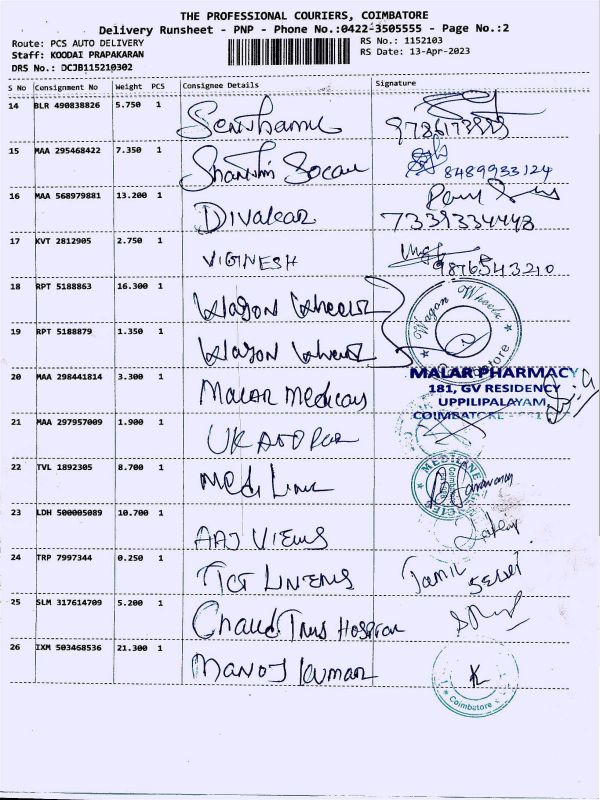 THE PROFESSIONAL COURIERS, COIMBATORE
Delivery Runsheet - PNP - Phone No.:0422-3505555 - Page No.:2
Route: PCS AUTO DELIVERY
RS No.: 1152103
Staff: KOODAI PRAPAKARAN
RS Date: 13-Apr-2023
DRS No.: DCJB115210302
S No Consignment No Weight PCS Consignee Details Signature
14 BLR 490838826 5.750 1
15 MAA 295468422 7.350 1 Shanthi
8489933124
16 MAA 568979881 13.200 1 Divakar
7339334448
17 KVT 2812905 2.750 1 VIGINESH
9876543210
18 RPT 5188863 16.300 1 Wagon Wheels
Wagon Wheels
Coimbatore
19 RPT 5188879 1.350 1 Wagon Wheels
20 MAA 298441814 3.300 1 Malar Medicals
MALAR PHARMACY
181, GV RESIDENCY
UPPILIPALAYAM
COIMBATORE
21 MAA 297957009 1.900 1
22 TVL 1892305 8.700 1 Medi Line
23 LDH 500005089 10.700 1 AAJ Views
24 TRP 7997344 0.250 1 TCT Linens Tamil Selvi
25 SLM 317614709 5.200 1
26 IXM 503468536 21.300 1 Manoj Kumar
K
Coimbatore